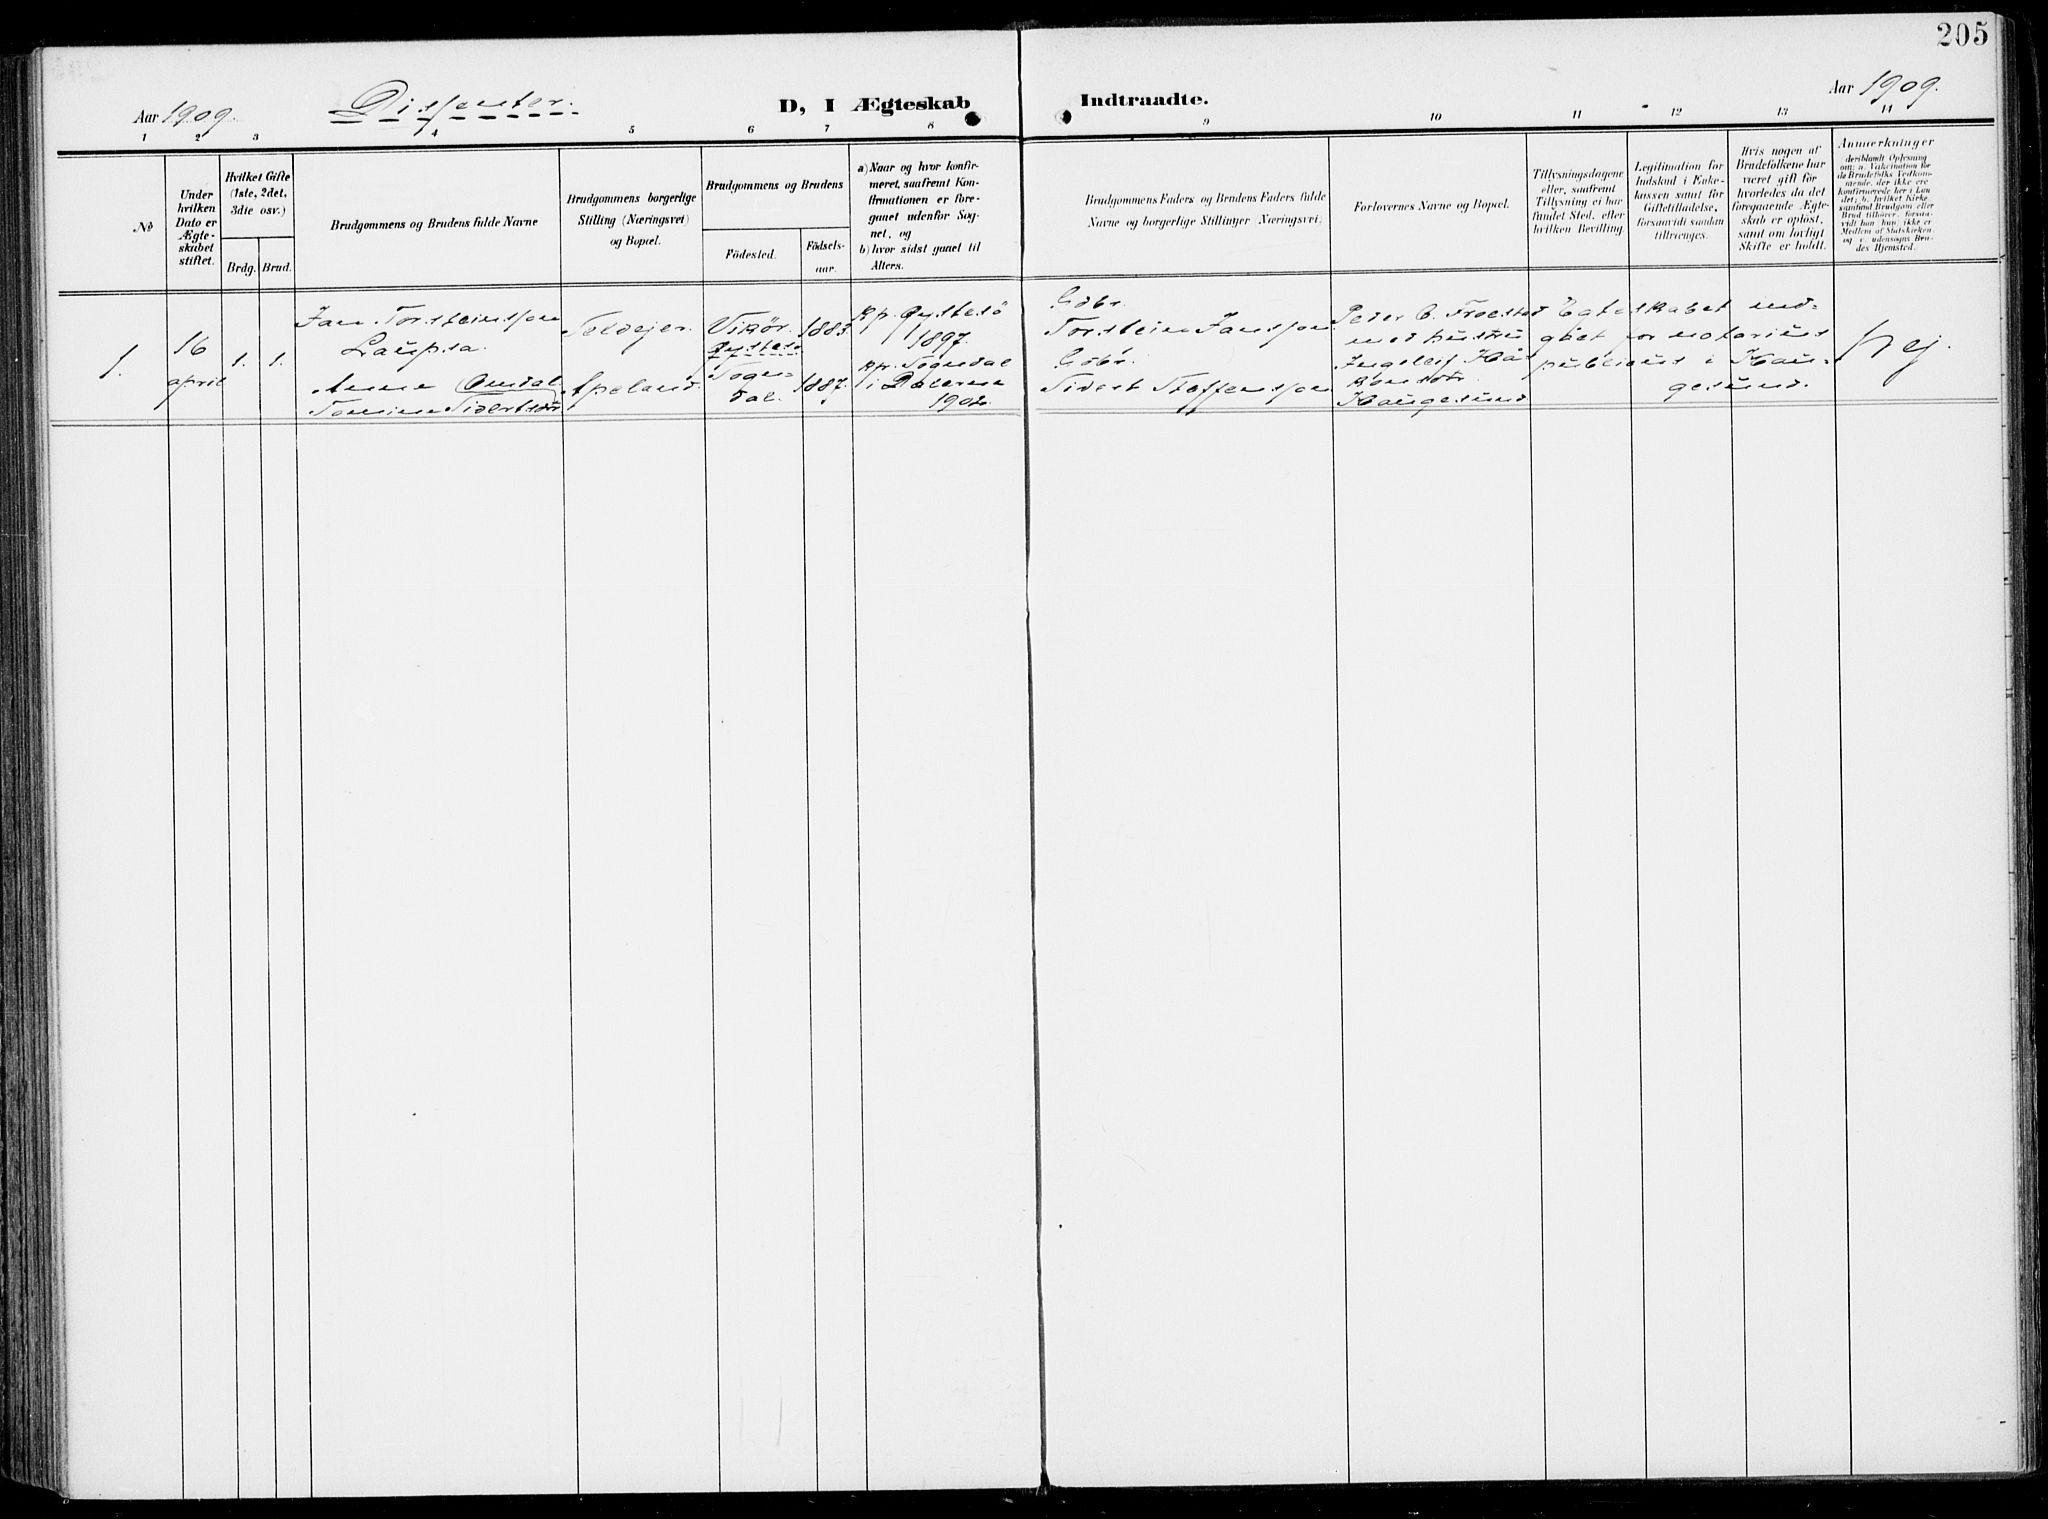 205
Aar 1909. Dissenter. D, I Ægteskab Indtraadte. Aar 1909.
1 2 3 4 5 6 7 8 9 10 11 12 13 14
No
Under
hvilken
Dato er
Ægte-
skabet
stiftet.
Hvilket Gifte
(1ste, 2det,
3die osv.)
Brdg. Brud.
Brudgommens og Brudens fulde Navne
Brudgommens borgerlige
Stilling (Næringsvei)
og Bopæl.
Brudgommens og Brudens
Födested.
Födsels-
aar.
a) Naar og hvor konfir-
meret, saafremt Kon-
firmationen er fore-
gaaet udenfor Sog-
net, og
b) hvor sidst gaaet til
Alters.
Brudgommens Faders og Brudens Faders fulde
Navne og borgerlige Stillinger (Næringsvei)
Forlovernes Navne og Bopæl.
Tillysningsdagene
eller, saafremt
Tillysning ei har
fundet Sted, efter
hvilken Bevilling.
Legitimation for
Indskud i Enke-
kassen samt for
Giftetilladelse,
forsaavidt saadan
tiltrænges.
Hvis nogen af
Brudefolkene har
været gift før
hvorledes da det
foregaaende Ægte-
skab er opløst,
samt om lovligt
Skifte er holdt.
Anmærkninger
deriblandt Oplysning
om: a. Vakcination for
de Brudefolks Vedkom-
mende, der ikke ere
konfirmerede her i Lan
det; b. hvilket Kirke-
samfund Brudgom eller
Brud tilhører, forsaa-
vidt han, hun, ikke er
Medlem af Statskirken,
og c. udensogns Bru-
des Hjemsted.
1.
16
april
1. 1.
Jan Torsteinsson
Laupsa.
Anne Omdal
Tomine Sivertsdtr
Seldejer
Apeland.
Vikör.
Øystese
Sogn-
dal.
1883
1887.
kp. Øystesö
1897.
kp. Sogndal
i Dalerne
1902.
Gdbr.
Torstein Jansson
Gdbr.
Sivert Steffensson
Peder C. Froestad
med hustru
Ingeleif Hå-
konsdtr
Haugesund
Egteskabet ind-
gået for notarius
publicus i Hau-
gesund.
Nej.